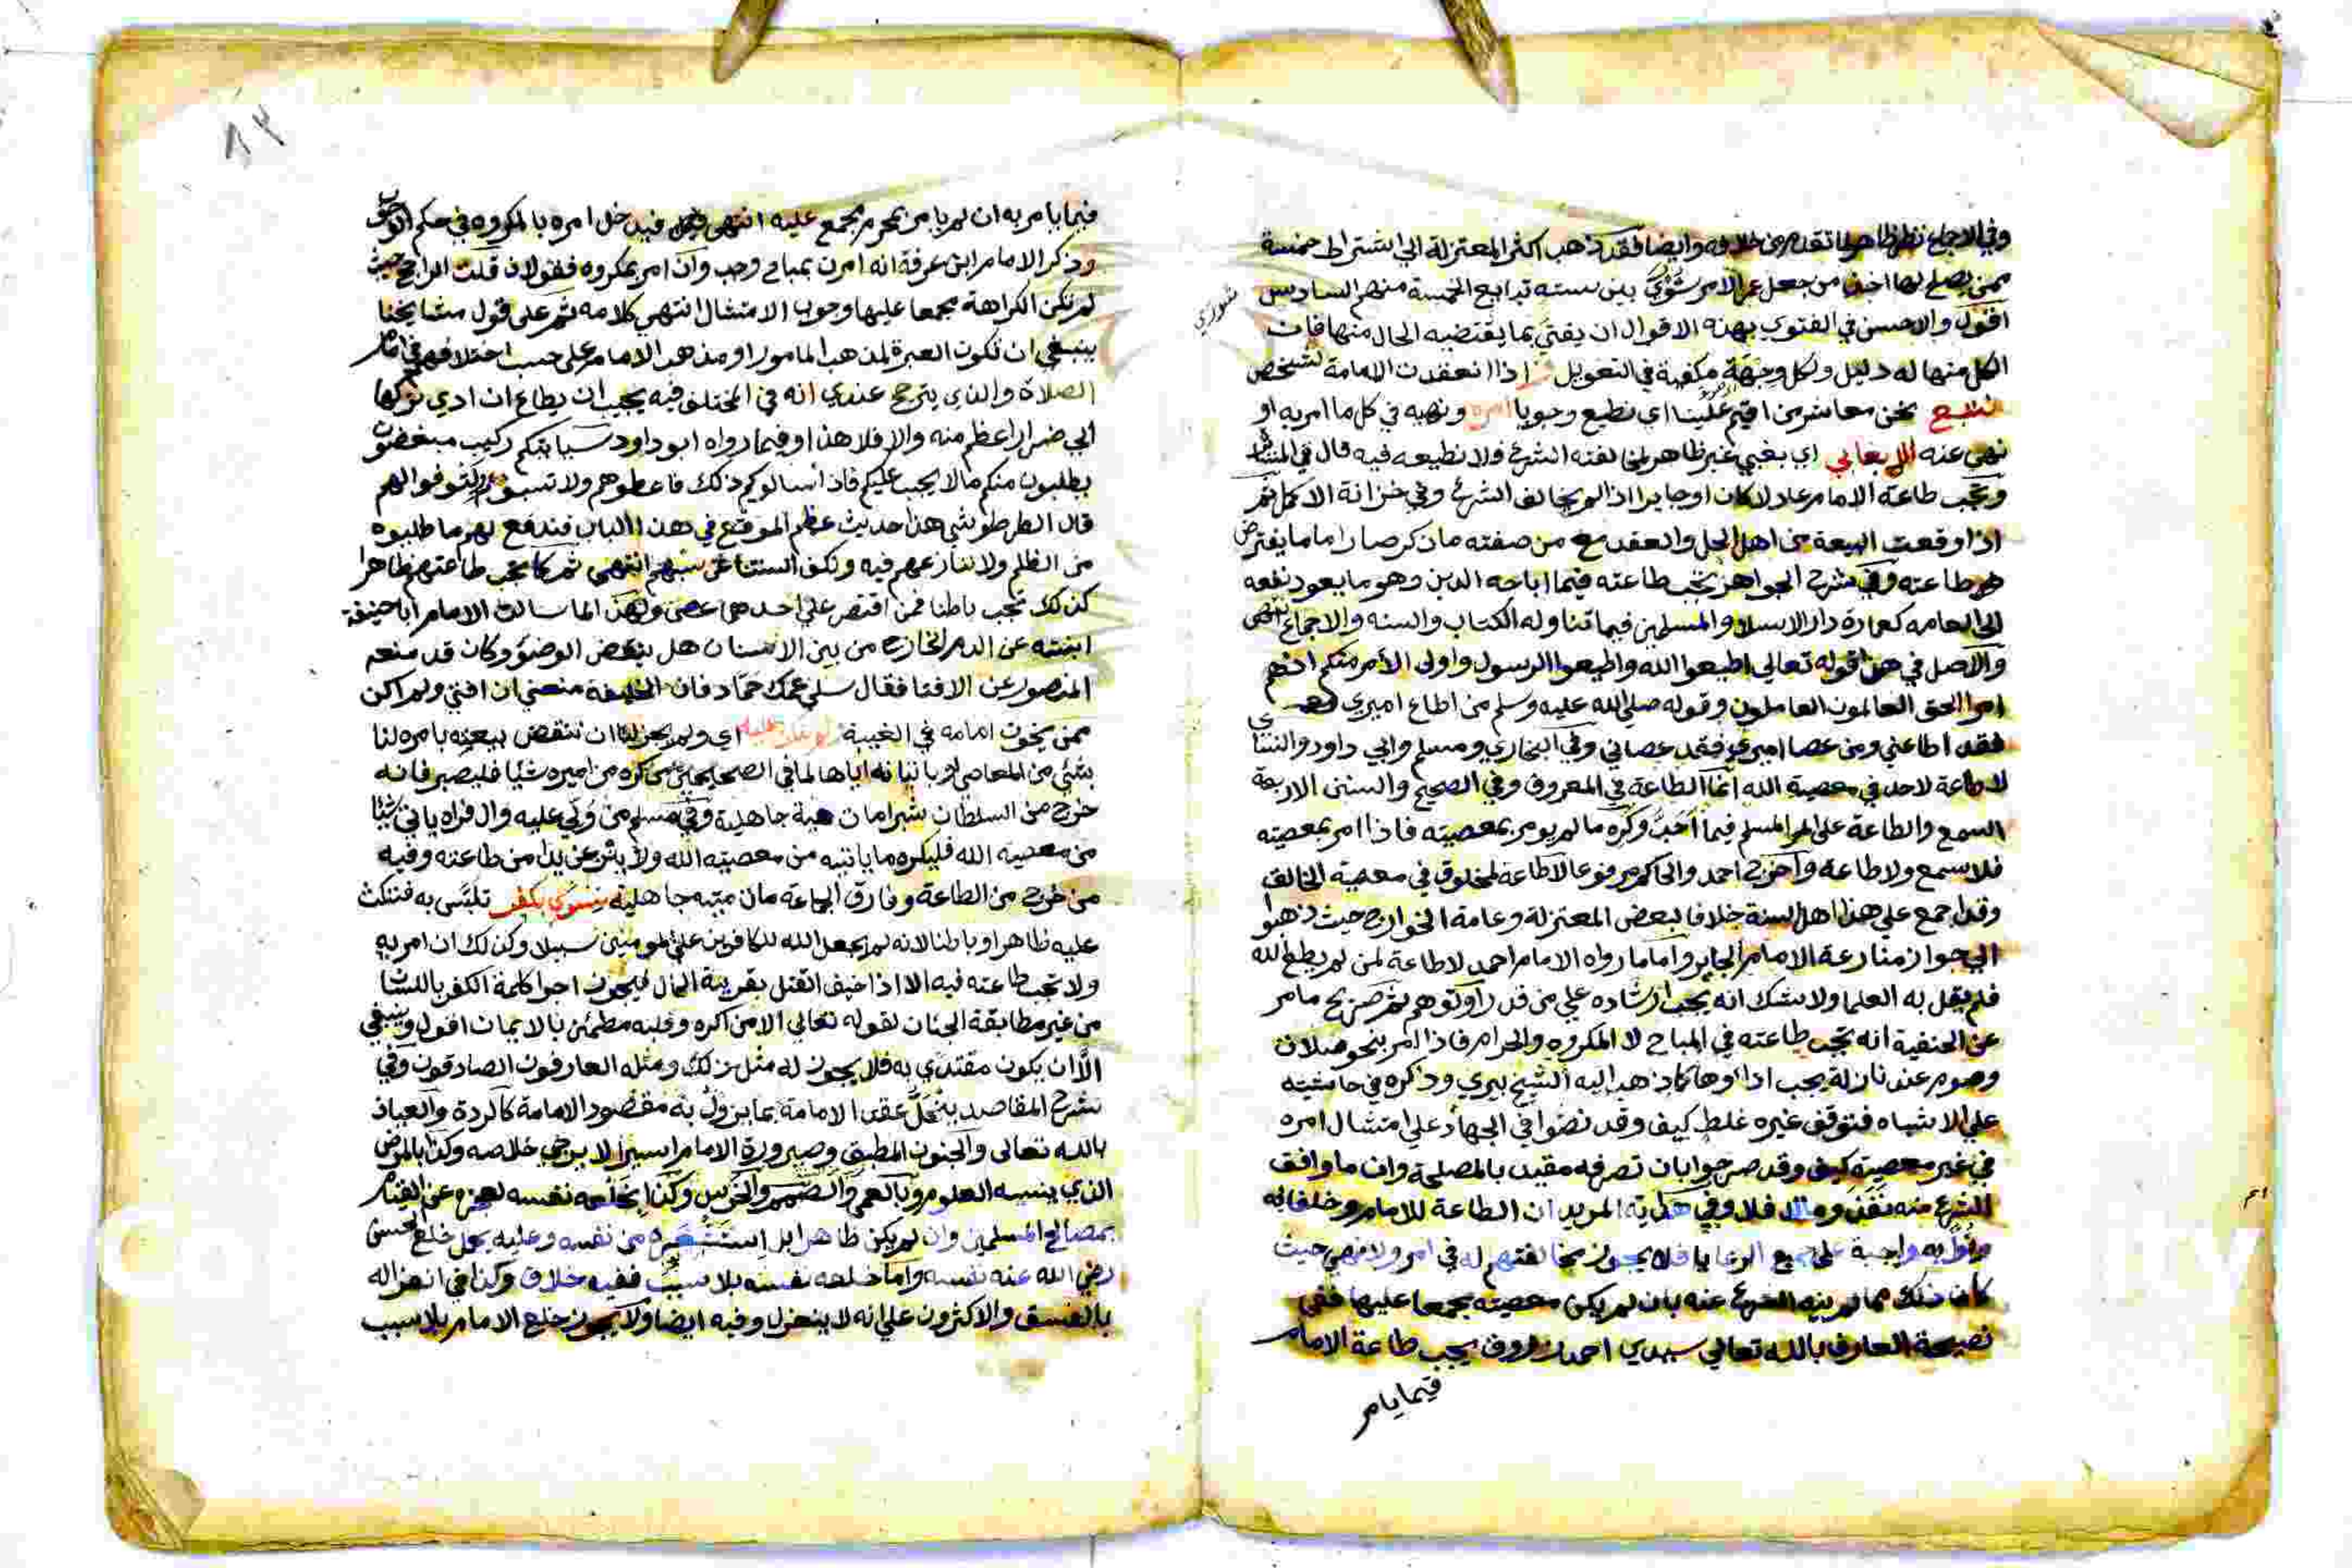 وفي الاجماع نظر ظاهر لما تقدم من خلافه وايضا فقد ذهب اكثر المعتزلة الي اشتراط خمسة
ممن يصلح لها اخذا من جعل عمر الامر شوري بين ستة تبايع الخمسة منهم السادس
شوري
اقول والاحسن في الفتوي بهذه الاقوال ان يفتي بما يقتضيه الحال منها فان
الكل منها له دليل ولكل وجهة مكفية في التعويل اذا انعقدت الامامة لشخص
نحن معاشر من اقيم علينا اي نطيع وجوبا امره ونهيه في كل ما امر به او
نهي عنه اي بغي غير ظاهر لمخالفته الشرع فلا نطيعه فيه قال في
وتجب طاعة الامام عادلا كان او جايرا اذا لم يخالف الشرع وفي خزانة الاكمل ثم
اذا وقعت البيعة من اهل الحل والعقد مع من صفته ما ذكر صار اماما يفترض
طاعته وفي شرح الجواهر تجب طاعته فيما اباحه الدين وهو ما يعود نفعه
الي العامه كعمارة دار الاسلام والمسلمين فيما تناوله الكتاب والسنه والاجماع انتهي
والاصل في هذا قوله تعالي اطيعوا الله واطيعوا الرسول واولي الأمر منكم
امرا الحق العالمون العاملون وقوله صلي الله عليه وسلم من اطاع اميري
فقد اطاعني ومن عصا اميري فقد عصاني وفي البخاري ومسلم وابي داود والنسائي
لا طاعة لاحد في معصية الله انما الطاعة في المعروف وفي الصحيح والسنن الاربعة
السمع والطاعة علي المرا المسلم فيما احب وكره ما لم يومر بمعصيته فاذا امر بمعصيته
فلا سمع ولا طاعة واخرج احمد والحاكم مرفوعا لا طاعة لمخلوق في معصية الخالق
وقد اجمع علي هذا اهل السنة خلافا لبعض المعتزلة وعامة الخوارج حيث ذهبوا
الي جواز منازعة الامام الجاير واما ما رواه الامام احمد لا طاعة لمن لم يطع الله
فلم يقل به العلما ولا شك انه يجب ارشاده علي من قدر او توهم ثم صريح ما مر
عن الحنفية انه تجب طاعته في المباح لا المكروه والحرام فاذا امر بنحو صلاة
وصوم عند نازلة يجب اداوها كما ذهب اليه الشيخ بيري وذكره في حاشيته
علي الاشباه فتوقف غيره غلط كيف وقد نصوا في الجهاد علي امتثال امره
في غير معصية كيف وقد صرحوا بان تصرفه مقيد بالمصلحة وان ما وافق
الشرع منه نفذ ومالا فلا وفي هداية المريد ان الطاعة للامام وخلفائه
ونوابه واجبة علي جميع الرعايا فلا يجوز مخالفتهم له في امر ولا نهي حيث
كان ذلك مما لم ينه الشرع عنه بان لم يكن معصيته مجمعا عليها ففي
نصيحة العارف بالله تعالي سيدي احمد زروق يجب طاعة الامام
فيما يامر
٨٣
فيما يامر به ان لم يامر بمحرم مجمع عليه انتهي فيدخل امره بالمكروه في حكم
وذكر الامام ابن عرفة انه امر ن بمباح وجب وان امر بمكروه فقولان قلت الراجح حيث
لم تكن الكراهة مجمعا عليها وجوب الامتثال انتهي كلامه ثم علي قول مشايخنا
ينبغي ان تكون العبرة لمذهب المامور او مذهب الامام علي حسب اختلافهم في امام
الصلاة والذي يترجح عندي انه في المختلف فيه يجب ان يطاع ان ادي تركها
الي ضرر اعظم منه والا فلا هذا وفيما رواه ابو داود سياتيكم ركيب مبغضون
يطلبون منكم ما لا يجب عليكم فاذا سالوكم ذلك فاعطوهم ولا تسبوهم
قال الطرطوشي هذا حديث عظيم الموقع في هذا الباب فندفع لهم ما طلبوه
من الظلم ولا ننازعهم فيه ونكف السنتنا عن سبهم انتهي ثم كما تجب طاعتهم ظاهرا
كذلك تجب باطنا فمن اقتصر علي احدهما عصي ولهذا لما سالت الامام ابا حنيفة
ابنته عن الدم الخارج من بين الاسنان هل ينقض الوضؤ وكان قد منعه
المنصور عن الافتا فقال سلي عمك حماد فان الخليفة منعني ان افتي ولم اكن
ممن يخون امامه في الغيبة اي ولم يجز لنا ان ننقض بيعته بامره لنا
بشي من المعاصي او باتيانه اياها لما في الصحيحين من كره من اميره شيا فليصبر فانه
خرج من السلطان شبرا مات ميتة جاهلية وفي مسلم من ولي عليه وال فراه ياتي شيا
من معصية الله فليكره ما ياتيه من معصية الله ولا ينزعن يدا من طاعته وفيه
من خرج من الطاعة وفارق الجماعة مات ميتة جاهلية سوي بكفر تلبس به فننكث
عليه ظاهرا وباطنا لانه لم يجعل الله للكافرين علي المومنين سبيلا وكذلك ان امر به
ولا تجب طاعته فيه الا اذا خيف القتل بقرينة الحال فيجوز اجرا كلمة الكفر باللسان
من غير مطابقة الجنان لقوله تعالي الا من اكره وقلبه مطمئن بالايمان اقول وينبغي
الا ان يكون مقتدي به فلا يجوز له مثل ذلك ومثله العارفون الصادقون وفي
شرح المقاصد ينحل عقد الامامة بما يزول به مقصود الامامة كالردة والعياذ
بالله تعالي والجنون المطبق وصيرورة الامام اسيرا لا يرجي خلاصه وكذا بالمرض
الذي ينسيه العلوم وبالعمي والصمم والخرس وكذا بخلعه نفسه لعجزه عن القيام
بمصالح المسلمين وان لم يكن ظاهرا بل استشعره من نفسه وعليه يحمل خلع الحسن
رضي الله عنه نفسه واما خلعه نفسه بلا سبب ففيه خلاف وكذا في انعزاله
بالفسق والاكثرون علي انه لا ينعزل وفيه ايضا ولا يجوز خلع الامام بلا سبب